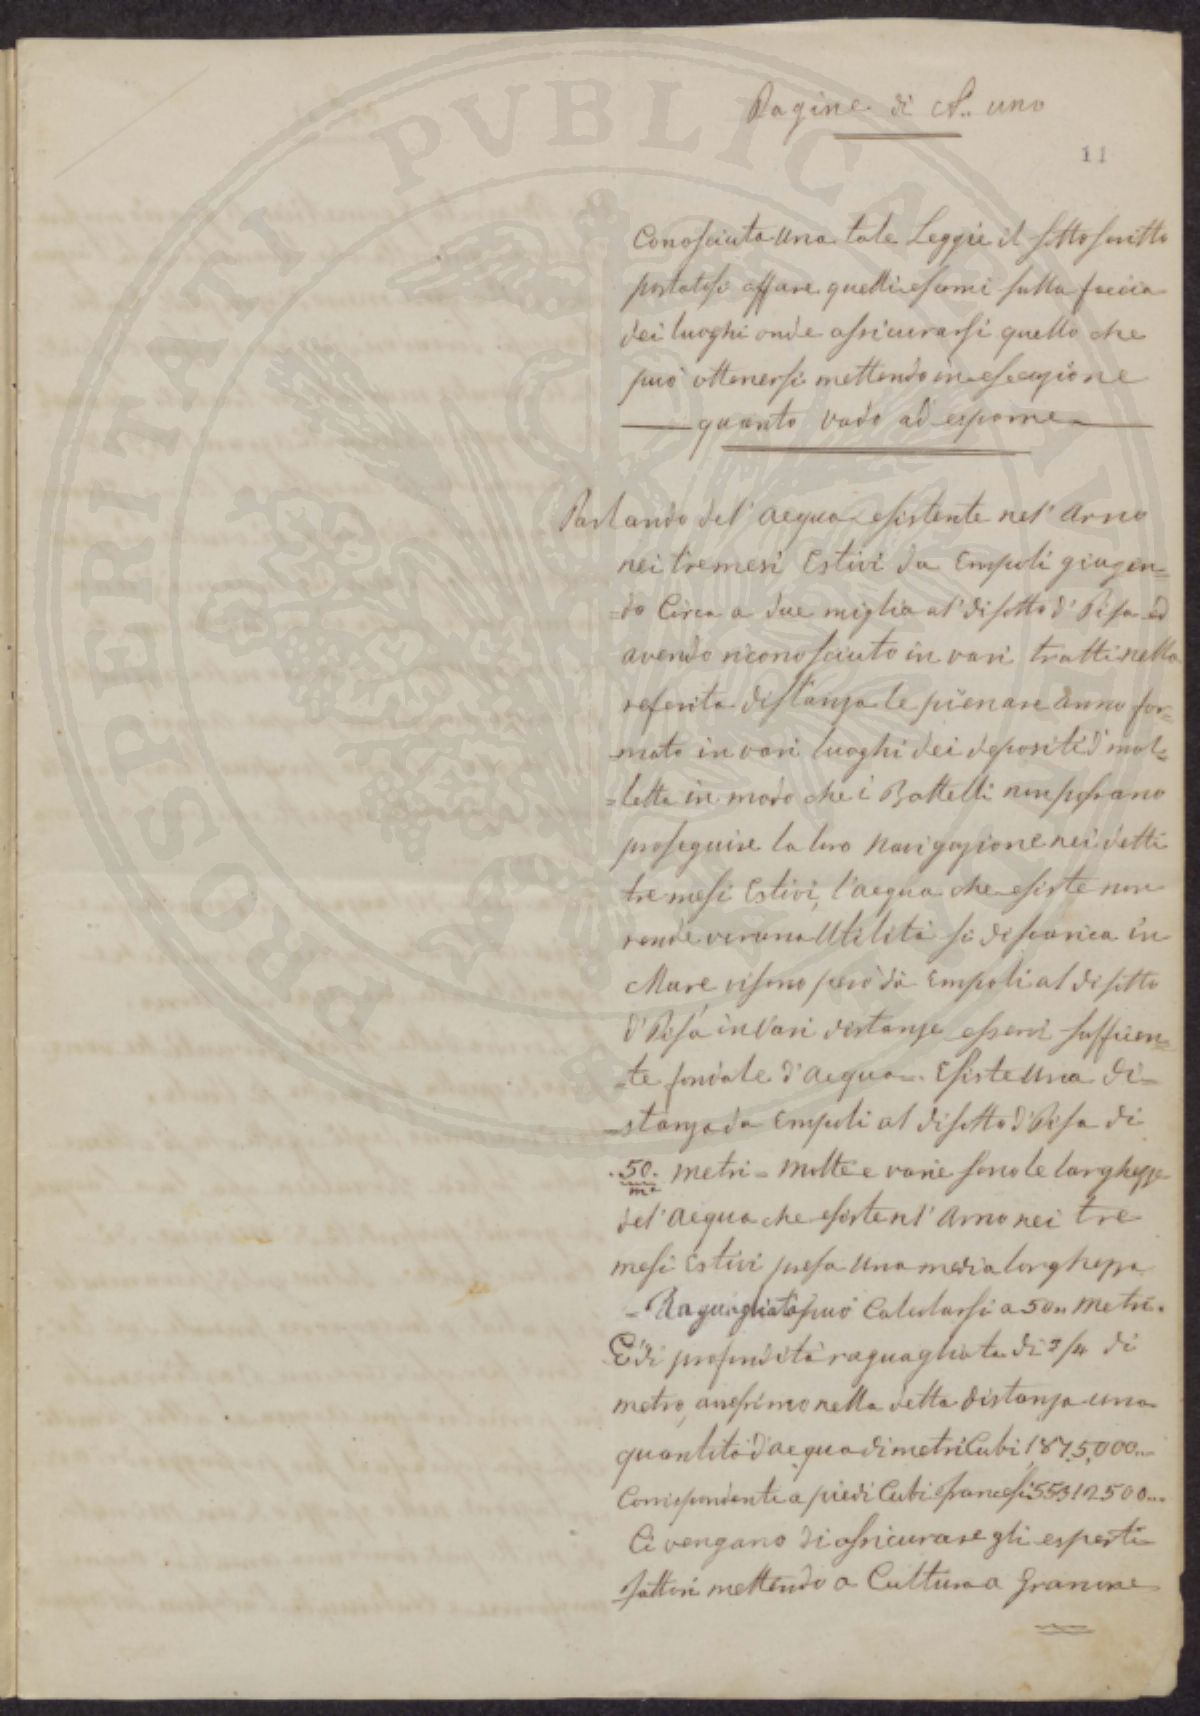 Pagine di N.. uno
11
Conosciuta una tale Leggie il sottoscritto
portatosi affare quelli esami sulla faccia
dei luoghi onde assicurarsi quello che
può ottenersi mettendo in esecuzione
quanto vado ad esporre
Parlando del' acqua esistente nel' Arno
nei tre mesi Estivi da Empoli giugen=
=do Circa a due miglia al' disotto d' Pisa ed
avendo riconosciuto in vari tratti nella
referita distanza le piene are anno for=
mato in vari luoghi dei depositi d' mel=
=letta in modo che i Battelli non possano
proseguire la loro Navigazione nei detti
tre mesi Estivi, l'acqua che esiste non
rende veruna Utilità si discarica in
Mare visono però da Empoli al disotto
d' Pisa in Vari distanze esservi sufficien=
=te fondale d' acqua. Esiste Una di=
=stanza da Empoli al disotto d' Pisa di
.50. metri = Molte e varie sono le larghezze
mª
del' acqua che esiste nl' Arno nei tre
mesi Estivi presa Una media larghezza
= Raguagliata può Calcularsi a 50.. Metri.
E' di profondità raguagliata di 3/4 di
metro, avessimo nella detta distanza una
quantità d' acqua di metri Cubi 1875,000..
Corrispondente a piedi Cubi francesi 55312500...
Ci vengano di assicurare gli esperti
fattori mettendo a Cultura a Granone